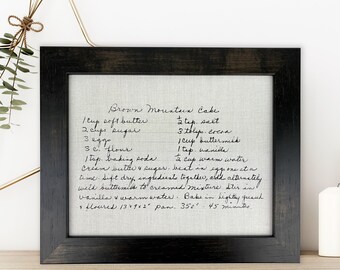 Brown Mountain Cake
1 cup soft butter ½ tsp. salt
2 cups sugar 3 tblsp. cocoa
3 eggs 1 cup buttermilk
3 c. flour 1 tsp. vanilla
1 tsp. baking soda ½ cup warm water
Cream butter & sugar. beat in eggs one at a
time. Sift dry ingredients together, add alternately
with buttermilk to creamed mixture. Stir in
vanilla & warm water. Bake in lightly greased
& floured 13x9x2" pan. 350° - 45 minutes